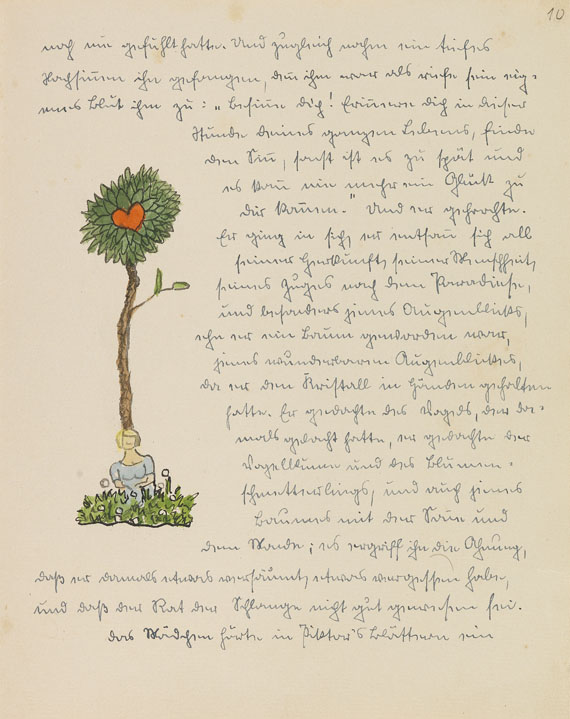 10
noch nie gefühlt hatte. Und zugleich nahm ein tiefes
Nachsinnen ihn gefangen, dem ihm war als riefe sein eig-
enes Blut ihm zu: „Besinne dich! Erinnere dich in dieser
Stunde deines ganzen Lebens, finde
den Sinn, sonst ist es zu spät und
es kann nie mehr ein Glück zu
dir kommen." Und er gehorchte.
Er ging in sich, er entsann sich all
seiner Herkunft, seiner Menschheit,
seines Zuges nach dem Paradiese,
und besonders jenes Augenblicks,
ehe er ein Baum geworden war,
jenes wunderbaren Augenblickes,
da er den Kristall in Händen gehalten
hatte. Er gedachte des Vogels, der da-
mals gelacht hatte, er gedachte der
Vogelblume und des Blumen-
schmetterlings, und auch jenes
Baumes mit der Sonne und
dem Monde; es ergriff ihn die Ahnung,
daß er damals etwas versäumt, etwas vergessen habe,
und daß der Rat der Schlange nicht gut gewesen sei.
Das Mädchen hörte in Piktor's Blättern ein